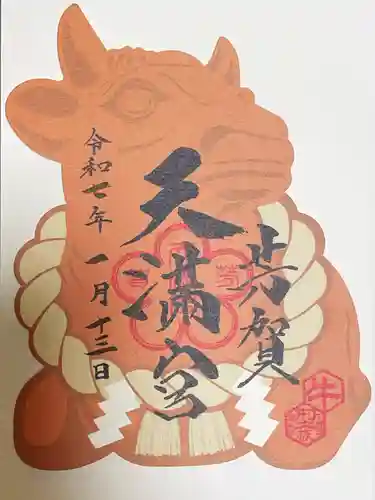 芳賀
天満宮
令和七年一月十三日
牛